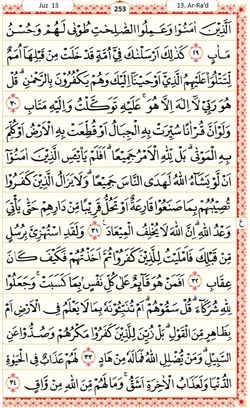 Juz 13
253
13. Ar-Ra'd
اَلَّذِيْنَ اٰمَنُوْا وَعَمِلُوا الصّٰلِحٰتِ طُوْبٰى لَهُمْ وَحُسْنُ
مَاٰبٍ ٢٩ كَذٰلِكَ اَرْسَلْنٰكَ فِيْٓ اُمَّةٍ قَدْ خَلَتْ مِنْ قَبْلِهَآ اُمَمٌ
لِّتَتْلُوَا۟ عَلَيْهِمُ الَّذِيْٓ اَوْحَيْنَآ اِلَيْكَ وَهُمْ يَكْفُرُوْنَ بِالرَّحْمٰنِۗ قُلْ
هُوَ رَبِّيْ لَآ اِلٰهَ اِلَّا هُوَۚ عَلَيْهِ تَوَكَّلْتُ وَاِلَيْهِ مَتَابِ ٣٠
وَلَوْ اَنَّ قُرْاٰنًا سُيِّرَتْ بِهِ الْجِبَالُ اَوْ قُطِّعَتْ بِهِ الْاَرْضُ اَوْ كُلِّمَ
بِهِ الْمَوْتٰىۗ بَلْ لِّلّٰهِ الْاَمْرُ جَمِيْعًاۗ اَفَلَمْ يَا۟يْـَٔسِ الَّذِيْنَ اٰمَنُوْٓا
اَنْ لَّوْ يَشَاۤءُ اللّٰهُ لَهَدَى النَّاسَ جَمِيْعًاۗ وَلَا يَزَالُ الَّذِيْنَ كَفَرُوْا
تُصِيْبُهُمْ بِمَا صَنَعُوْا قَارِعَةٌ اَوْ تَحُلُّ قَرِيْبًا مِّنْ دَارِهِمْ حَتّٰى يَأْتِيَ
وَعْدُ اللّٰهِۗ اِنَّ اللّٰهَ لَا يُخْلِفُ الْمِيْعَادَ ٣١ وَلَقَدِ اسْتُهْزِئَ بِرُسُلٍ
مِّنْ قَبْلِكَ فَاَمْلَيْتُ لِلَّذِيْنَ كَفَرُوْا ثُمَّ اَخَذْتُهُمْۗ فَكَيْفَ كَانَ
عِقَابِ ٣٢ اَفَمَنْ هُوَ قَاۤىِٕمٌ عَلٰى كُلِّ نَفْسٍۢ بِمَا كَسَبَتْۚ وَجَعَلُوْا
لِلّٰهِ شُرَكَاۤءَۗ قُلْ سَمُّوْهُمْۗ اَمْ تُنَبِّـُٔوْنَهٗ بِمَا لَا يَعْلَمُ فِى الْاَرْضِ اَمْ
بِظَاهِرٍ مِّنَ الْقَوْلِۗ بَلْ زُيِّنَ لِلَّذِيْنَ كَفَرُوْا مَكْرُهُمْ وَصُدُّوْا عَنِ
السَّبِيْلِۗ وَمَنْ يُّضْلِلِ اللّٰهُ فَمَا لَهٗ مِنْ هَادٍ ٣٣ لَهُمْ عَذَابٌ فِى الْحَيٰوةِ
الدُّنْيَا وَلَعَذَابُ الْاٰخِرَةِ اَشَقُّۚ وَمَا لَهُمْ مِّنَ اللّٰهِ مِنْ وَّاقٍ ٣٤